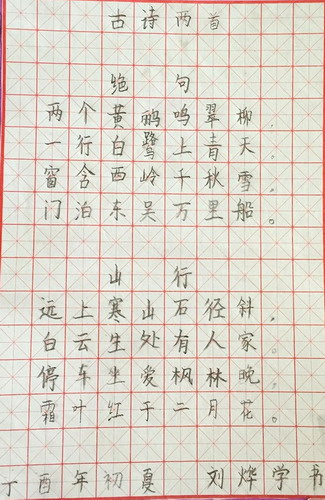 古诗两首
绝句
两个黄鹂鸣翠柳，
一行白鹭上青天。
窗含西岭千秋雪，
门泊东吴万里船。
山行
远上寒山石径斜，
白云生处有人家。
停车坐爱枫林晚，
霜叶红于二月花。
丁酉年初夏 刘烨学书